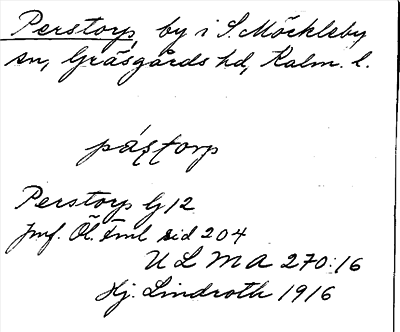 Perstorp, by i S. Möckleby
sn, Gräsgårds hd, Kalm. l.
pás̨t̨orp
Perstorp G 12
Jmf. Öl. Fml sid 204
U L M A 270:16
Hj. Lindroth 1916